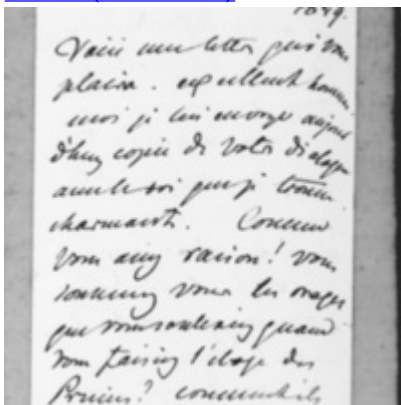 1849.
Voici une lettre qui vous
plaira. excellent homme
moi je lui envoye aujour
d'huy copie de votre dialogue
avec le roi que je trouve
charmante. Comme
vous aviez raison! vous
souvenez vous les orages
que vous souleviez quand
vous faisiez l'éloge des